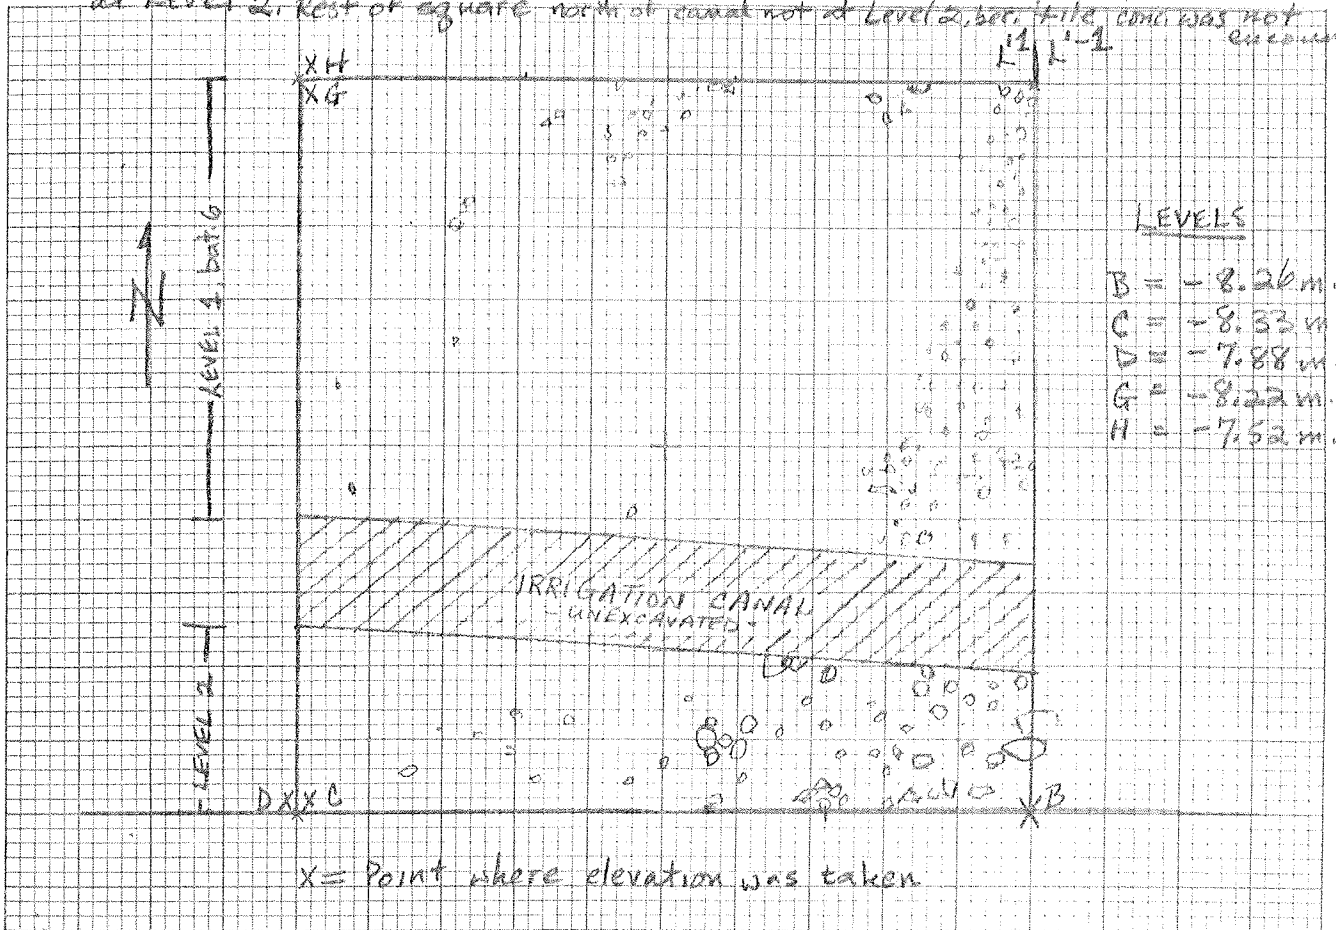 at Level 2. Rest of square north of canal not at Level 2, bec. tile conc. was not
XH
XG
L'1 L'-1
LEVEL 1, bat. 6
N
LEVELS
B = - 8.26 m.
C = - 8.33 m
D = - 7.88 m.
G = - 8.22 m.
H = - 7.52 m.
IRRIGATION CANAL
- UNEXCAVATED -
LEVEL 2
D X X C
B
X = Point where elevation was taken